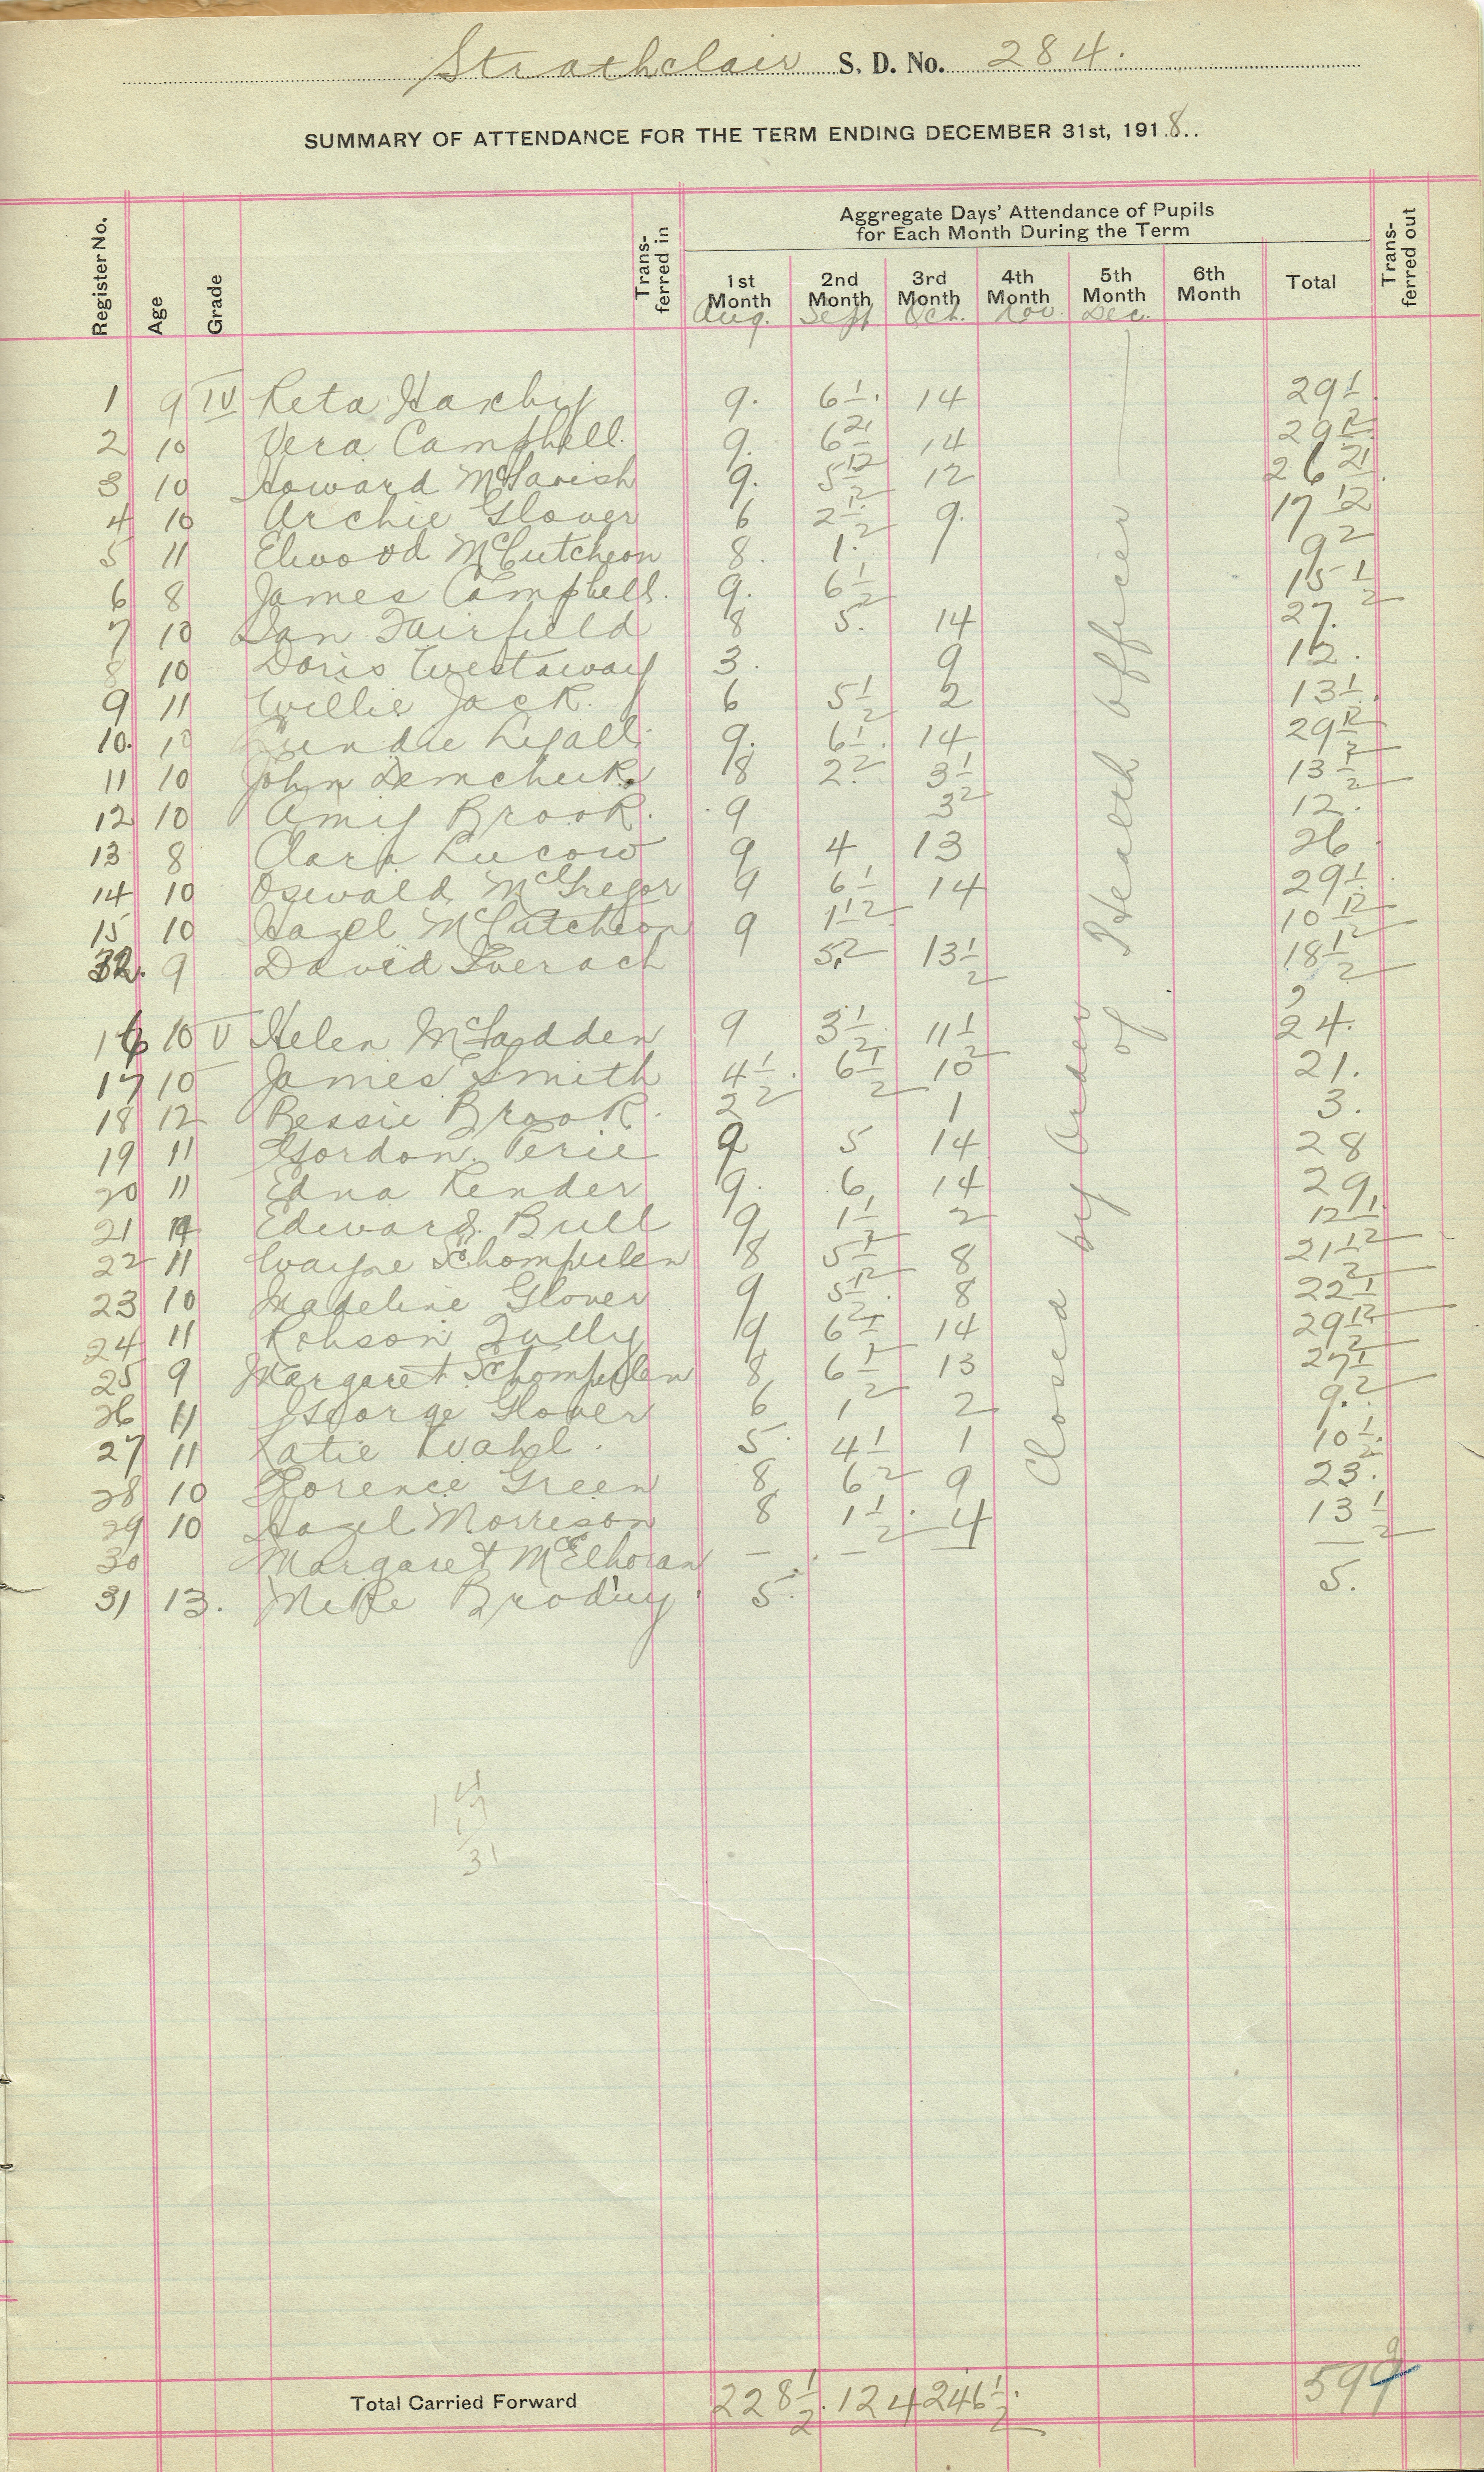 Strathclair S. D. No. 284.
SUMMARY OF ATTENDANCE FOR THE TERM ENDING DECEMBER 31st, 1918..
Register No. Age Grade Trans-ferred in Aggregate Days' Attendance of Pupils for Each Month During the Term Trans-ferred out
1st Month 2nd Month 3rd Month 4th Month 5th Month 6th Month Total
Aug. Sept. Oct. Nov. Dec.
1 9 IV Reta Haxby 9. 6 1/2. 14 29 1/2
2 10 Vera Campbell. 9. 6 1/2 14 29 1/2
3 10 Howard McTavish 9. 5 1/2 12 26 1/2
4 10 Archie Glover 6 2 1/2 9. 17 1/2
5 11 Elwood McCutcheon 8. 1. 9
6 8 James Campbell. 9. 6 1/2 15 1/2
7 10 Dan Fairfield 8 5. 14 27.
8 10 Doris Westaway 3. 9 12.
9 11 Willie Jack. 6 5 1/2 2 13 1/2
10. 10 Lyall. 9. 6 1/2. 14 29 1/2
11 10 John Demchuk. 8 2. 3 1/2 13 1/2
12 10 Amy Brook. 9 3 12.
13 8 Clara Lucow 9 4 13 26
14 10 Oswald McGregor 9 6 1/2 14 29 1/2
15 10 Hazel McCutcheon 9 1 1/2 10 1/2
32. 9 David Sverach 5. 13 1/2 18 1/2
16 10 V Helen McFadden 9 3 1/2. 11 1/2 24.
17 10 James Smith 4 1/2. 6 1/2 10 21.
18 12 Bessie Brook. 2 1 3.
19 11 Gordon Perie 9 5 14 28
20 11 Edna Render 9. 6 14 29
21 Edward Bull 9 1 1/2 2 12 1/2
22 11 Wayne Schomperlen 8 5 1/2 8 21 1/2
23 10 Madeline Glover 9 5 1/2. 8 22 1/2
24 11 Robson Tully 9 6 1/2 14 29 1/2
25 9 Margaret Schomperlen 8 6 1/2 13 27 1/2
26 11 George Glover 6 1 2 9.
27 11 Katie Wahl. 5. 4 1/2 1 10 1/2.
28 10 Florence Green 8 6 9 23.
29 10 Hazel Morrison 8 1 1/2. 4 13 1/2
30 Margaret McElhoran — — — —
31 13. Mike Brodiy 5. 5.
Closed by Order of Health Officer
31
Total Carried Forward 228 1/2. 124 246 1/2. 599